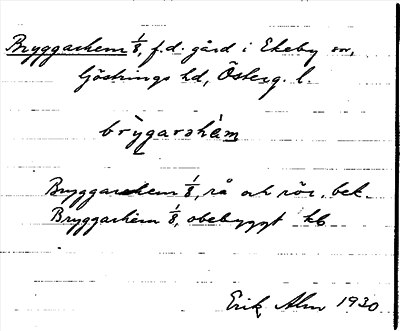 Bryggarhem 1/8, f.d. gård i Ekeby sn,
Göstrings hd, Österg. l.
brygarshàm
Bryggarehem 1/8, rå och rör. bek.
Bryggarhem 1/8, obebyggt kb
Erik Alm 1930